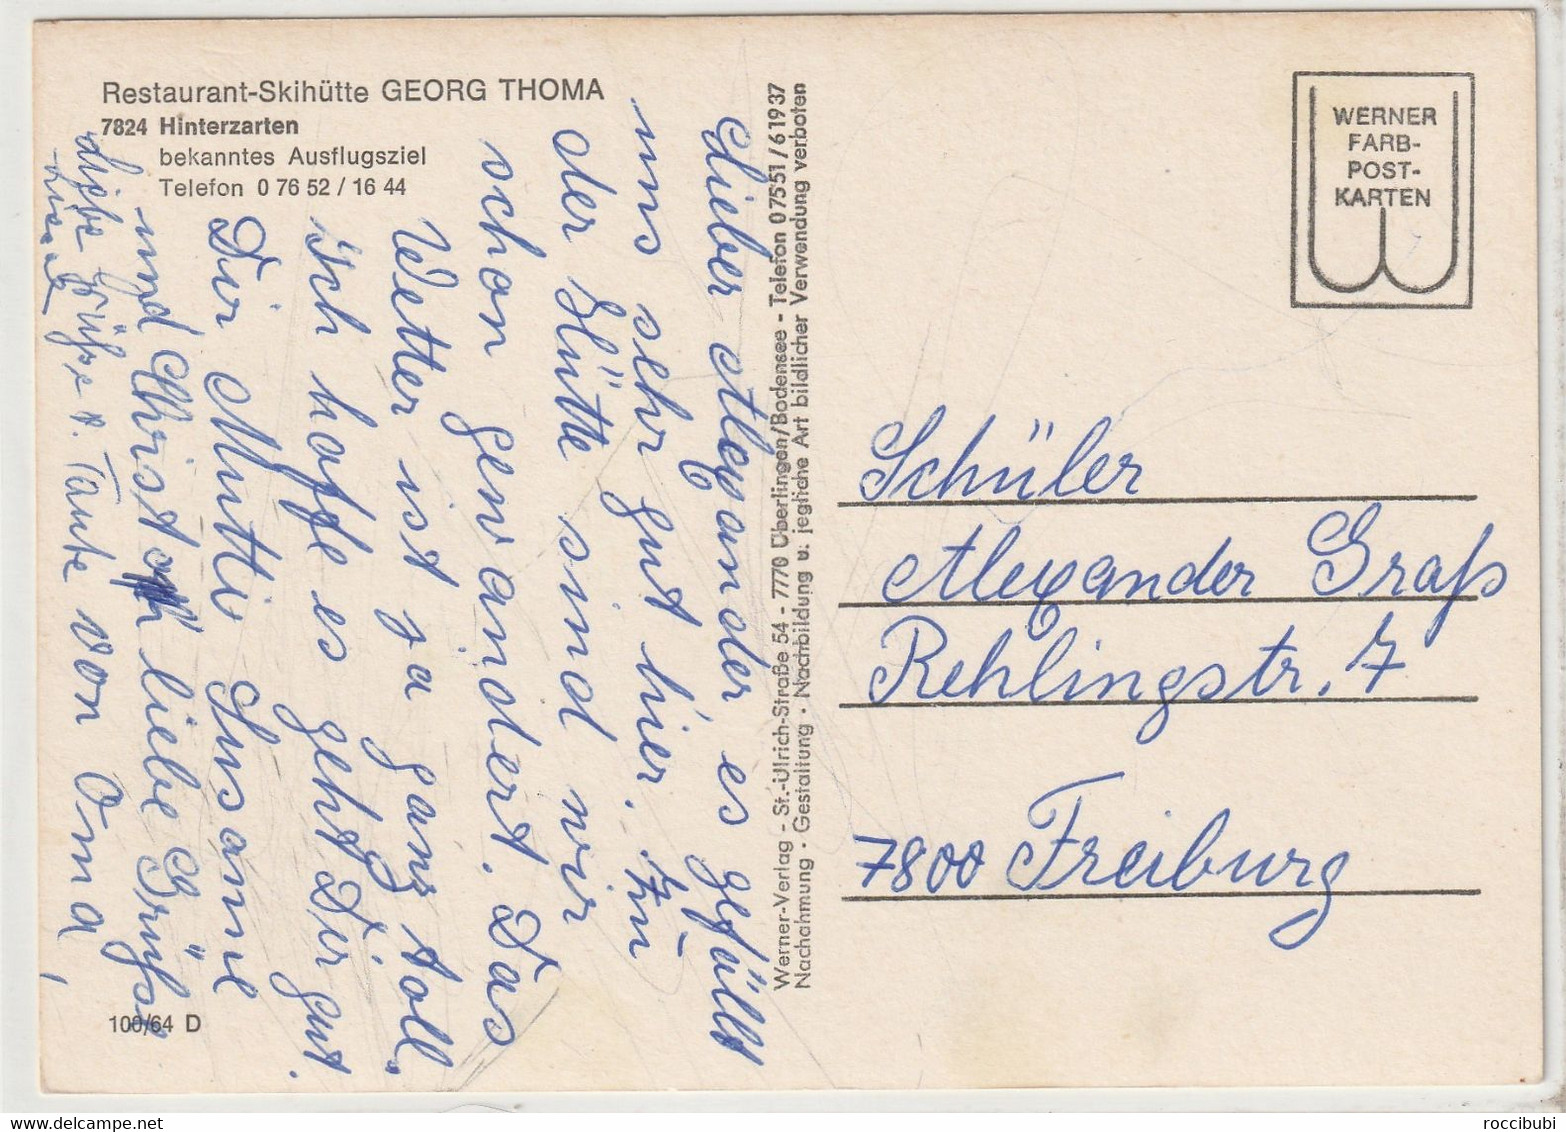 Restaurant-Skihütte GEORG THOMA
7824 Hinterzarten
bekanntes Ausflugsziel
Telefon 0 76 52 / 16 44
WERNER
FARB-
POST-
KARTEN
Lieber Alexander es gefällt
uns sehr gut hier. Zur
der Hütte sind wir
schon gewandert. Das
Wetter ist ja ganz toll.
Ich hoffe es geht Dir gut.
Dir Mutti Susanne
und Christoph liebe Grüße
von Oma,
liebe Grüße v. Tante
Werner-Verlag - St.-Ulrich-Straße 54 - 7770 Überlingen/Bodensee - Telefon 07551/61937
Nachahmung - Gestaltung - Nachbildung u. jegliche Art bildlicher Verwendung verboten
Schüler
Alexander Graß
Rehlingstr. 7
7800 Freiburg
100/64 D
roccibubi